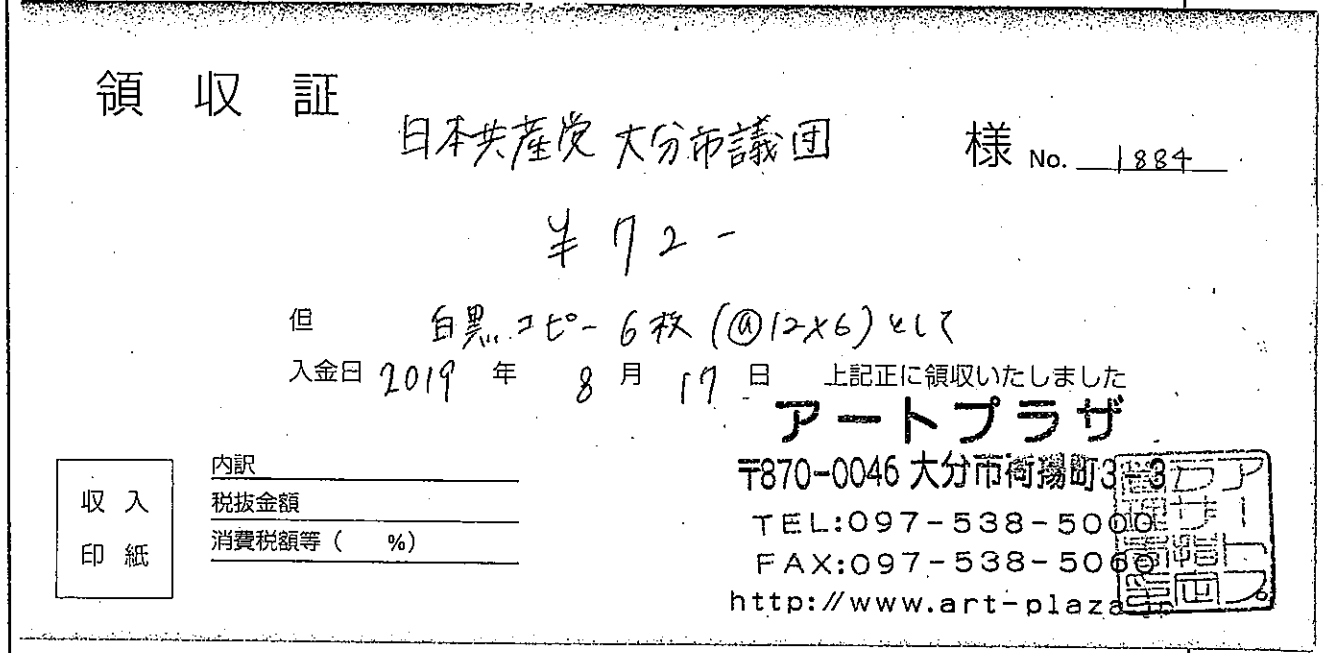 領収証
日本共産党 大分市議団 様 No. 1884
¥72-
但 白黒コピー6枚(@12×6)として
入金日 2019年 8月 17日 上記正に領収いたしました
アートプラザ
〒870-0046 大分市荷揚町3-3
TEL:097-538-5000
FAX:097-538-5060
http://www.art-plaza.jp
収入
印紙
内訳
税抜金額
消費税額等( %)